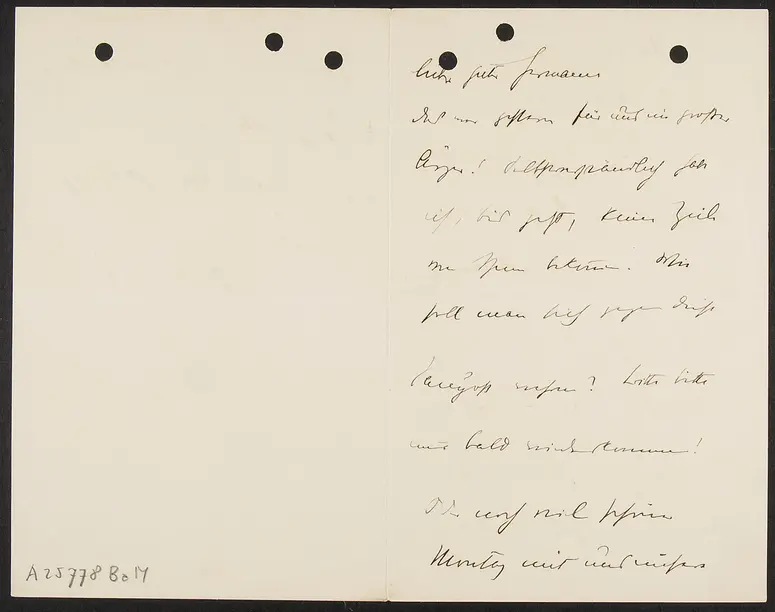 Liebe gute Hermann
das war gestern für uns ein großer
Ärger! Selbstverständlich hab
ich, bis jetzt, keine Zeile
von Ihnen bekommen. Wie
soll man sich gegen diese
wehren? bitte bitte
nur bald wieder kommen!
noch viel schöner
Montag mit uns
A 25778 BoM